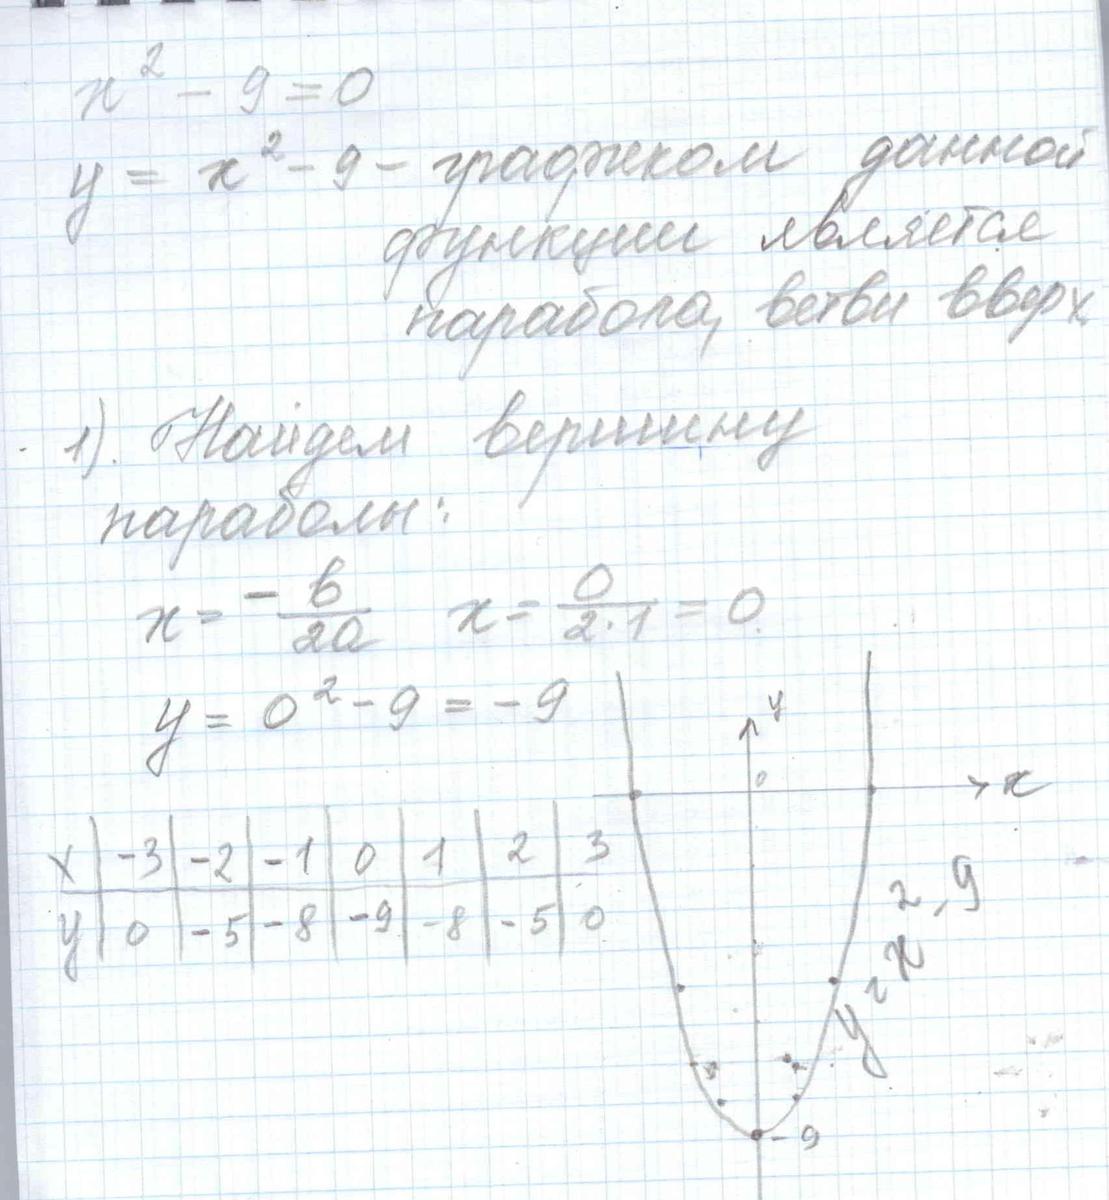 x² - 9 = 0
y = x² - 9 - графиком данной
функции является
парабола, ветви вверх
1). Найдем вершину
параболы:
x = - b/2a x = 0/2·1 = 0
y = 0² - 9 = -9
x | -3 | -2 | -1 | 0 | 1 | 2 | 3
y | 0 | -5 | -8 | -9 | -8 | -5 | 0
y
0
x
y = x² - 9
-9